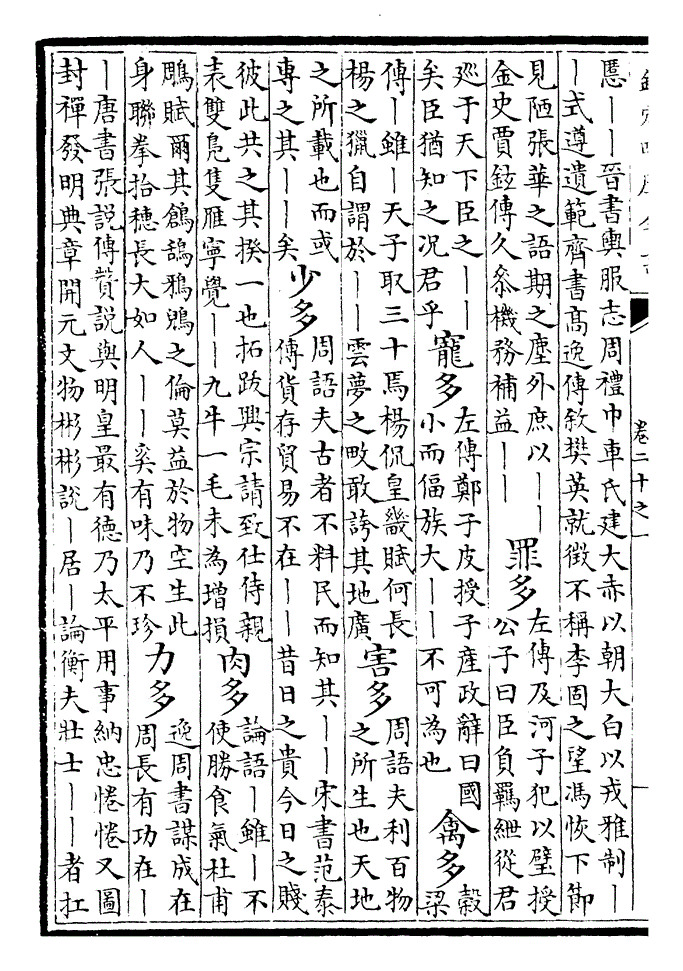 卷二十之一
慝——晉書輿服志周禮巾車氏建大赤以朝大白以戎雅制—
—式遵遺範齊書高逸傳敘樊英就徵不稱李固之望馮恢下節
見陋張華之語期之塵外庶以——
金史賈鉉傳久叅機務補益——
罪多
左傳及河子犯以璧授
公子曰臣負羈紲從君
廵于天下臣之——
矣臣猶知之况君乎
寵多
左傳鄭子皮授子產政辭曰國
小而偪族大——不可為也
禽多
穀
梁
傳—雖—天子取三十焉楊侃皇畿賦何長
楊之獵自謂於——雲夢之畋敢誇其地廣
害多
周語夫利百物
之所生也天地
之所載也而或
專之其——矣
少多
周語夫古者不料民而知其——宋書范泰
傳貨存貿易不在——昔日之貴今日之賤
彼此共之其揆一也拓跋興宗請致仕侍親
表雙鳧隻雁寧覺——九牛一毛未為增損
肉多
論語—雖—不
使勝食氣杜甫
鵰賦爾其鶬鴰鴉鴟之倫莫益於物空生此
身聯拳拾穗長大如人——奚有味乃不珍
力多
逸周書謀成在
周長有功在—
—唐書張説傳贊説與明皇最有德乃太平用事納忠惓惓又圖
封禪發明典章開元文物彬彬説—居—論衡夫壯士——者扛